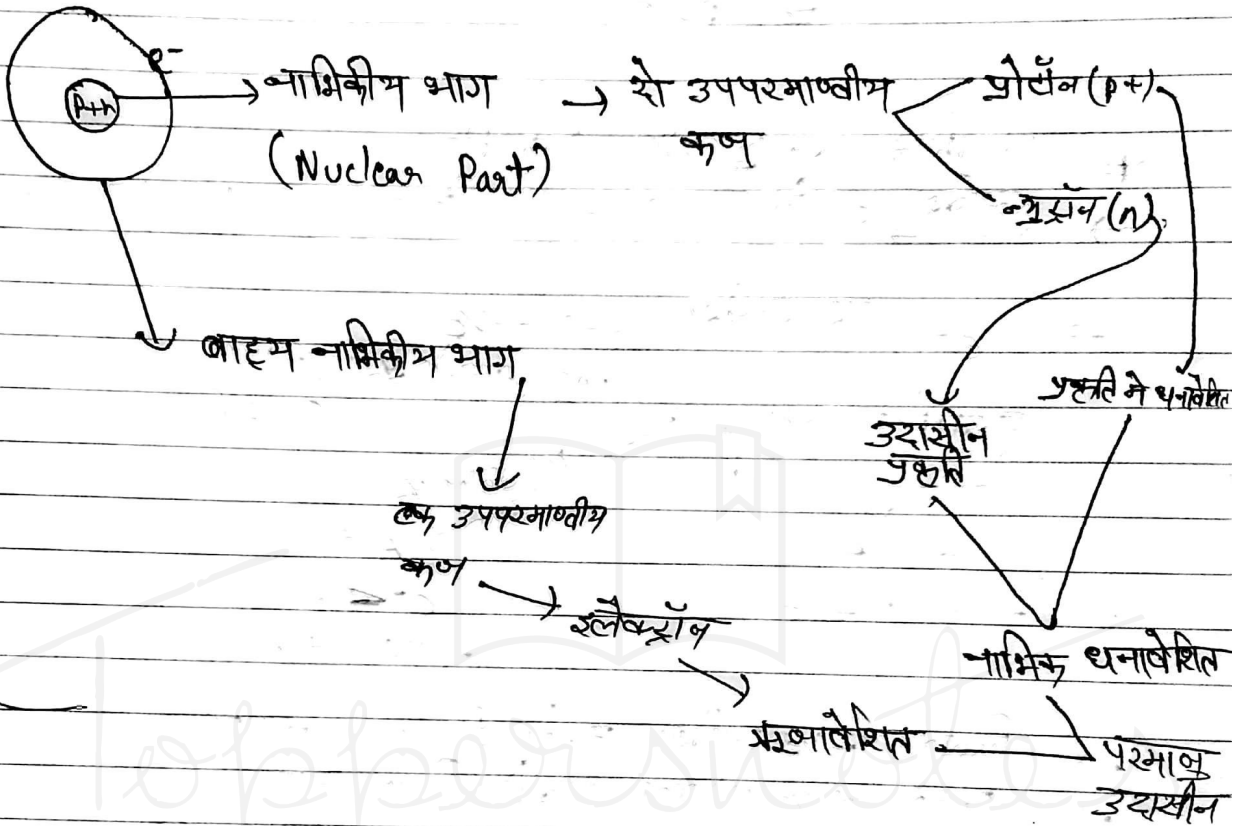 e-
p+n
नाभिकीय भाग
(Nuclear Part)
दो उपपरमाण्वीय
कण
प्रोटॉन (p+)
न्युट्रॉन (n)
बाह्य नाभिकीय भाग
उदासीन
प्रकृति
प्रकृति में धनावेशित
एक उपपरमाण्वीय
कण
इलैक्ट्रॉन
नाभिक धनावेशित
ऋणावेशित
परमाणु
उदासीन
Toppersnotes